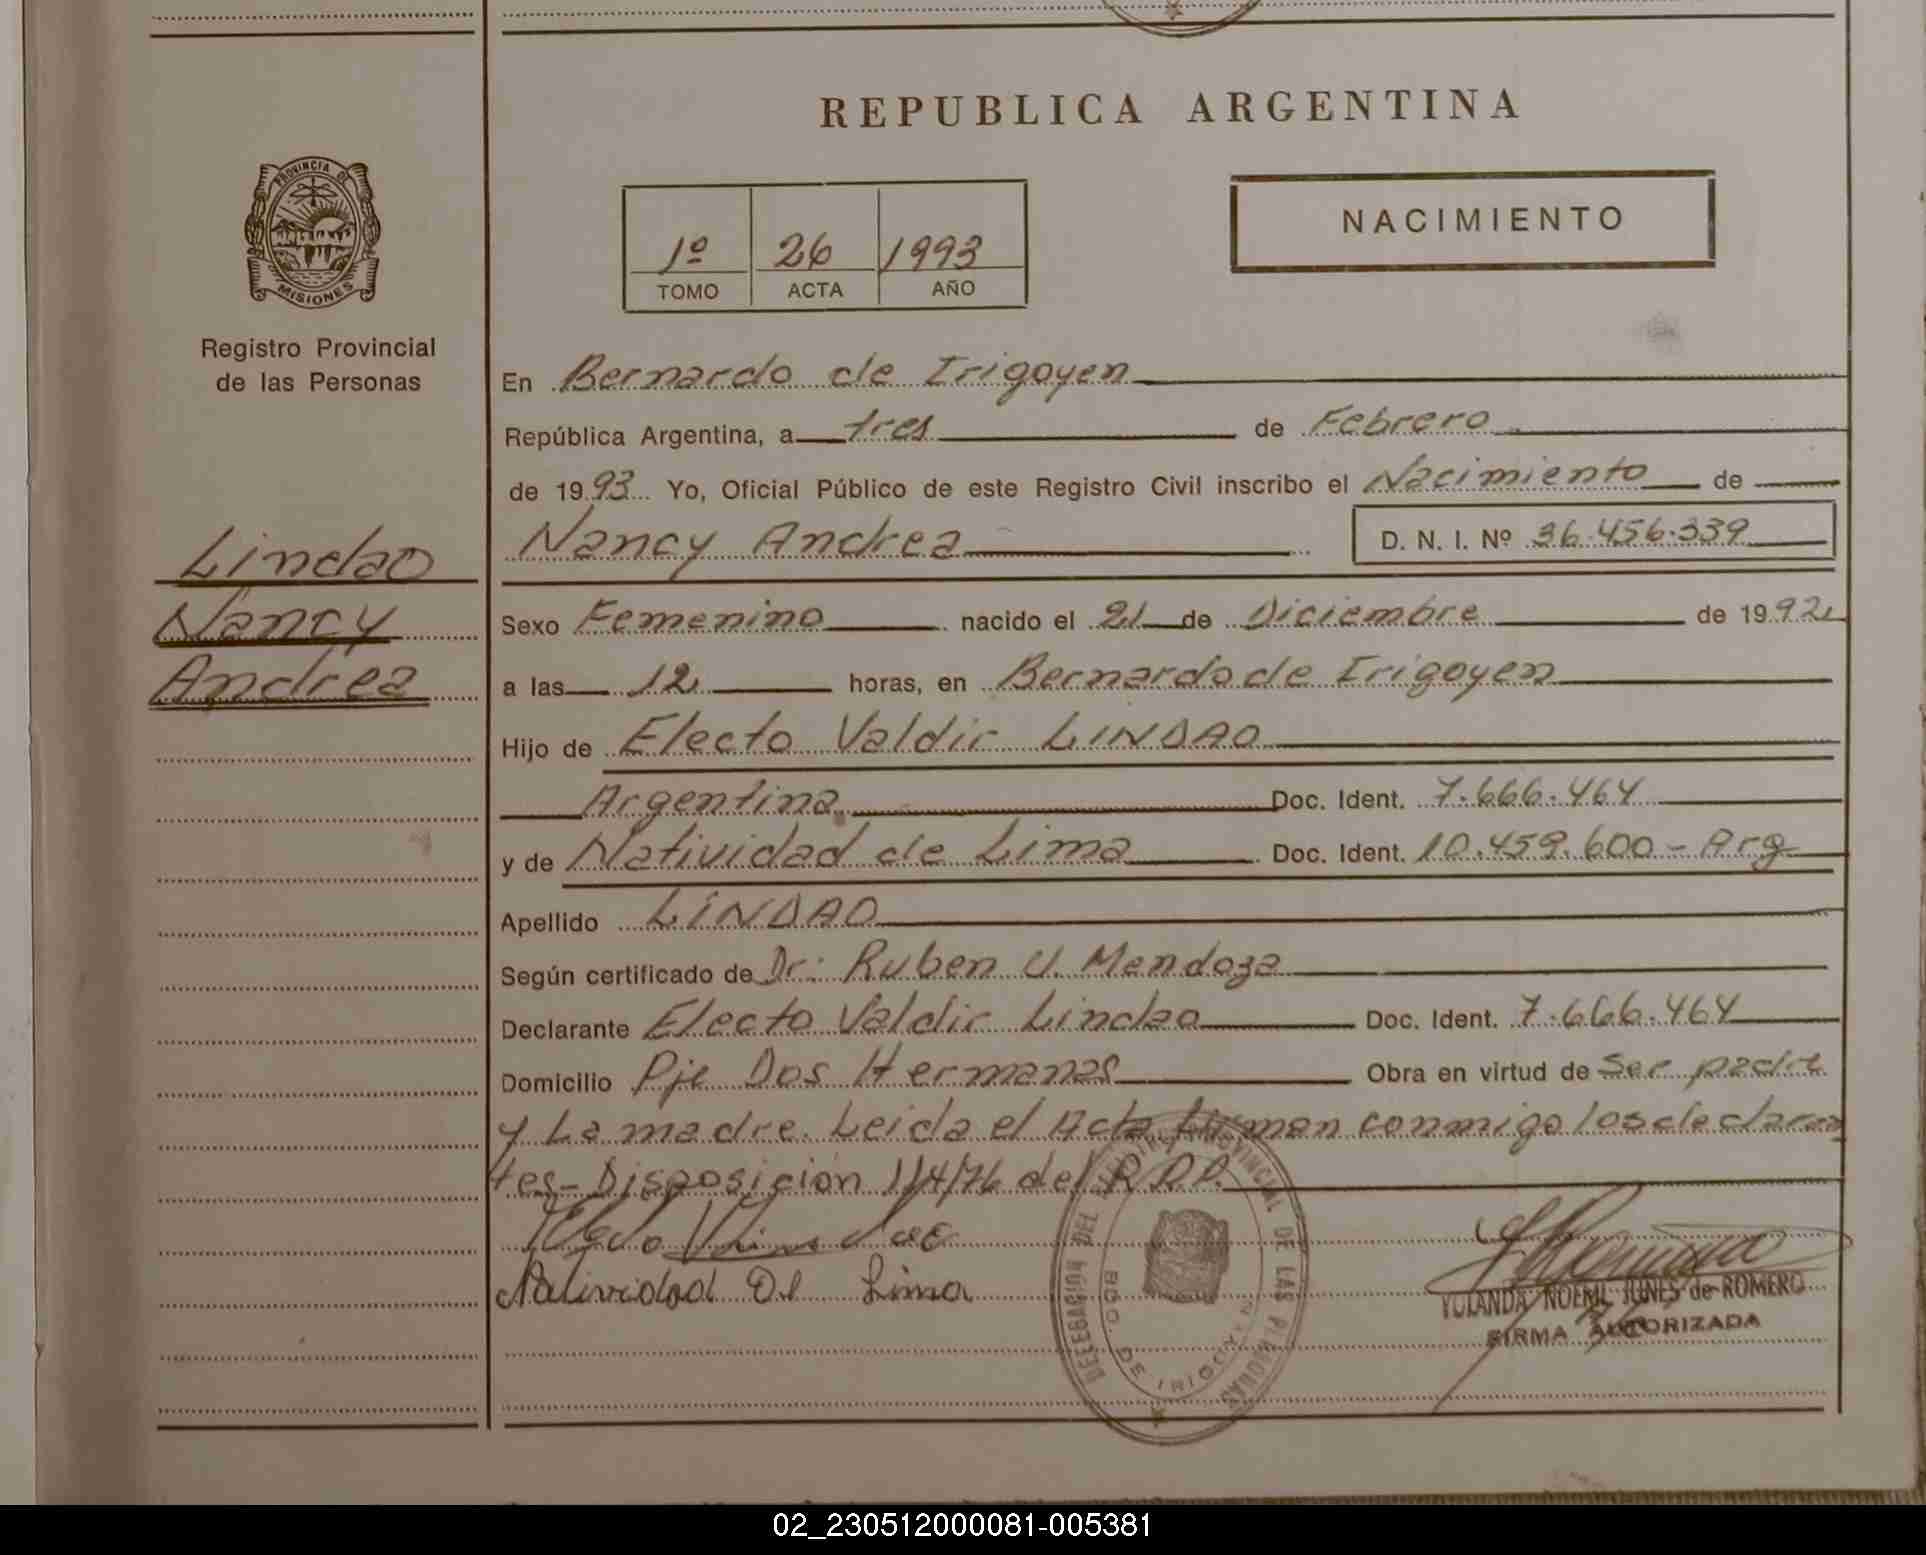 REPUBLICA ARGENTINA
PROVINCIA DE
MISIONES
Registro Provincial
de las Personas
1º 26 1993
TOMO ACTA AÑO
NACIMIENTO
En Bernardo de Irigoyen
República Argentina, a tres de Febrero
de 1993 Yo, Oficial Público de este Registro Civil inscribo el Nacimiento de
Nancy Andrea D. N. I. Nº 36.456.339
Lindao
Nancy
Andrea
Sexo Femenino nacido el 21 de Diciembre de 1992
a las 12 horas, en Bernardo de Irigoyen
Hijo de Electo Valdir LINDAO
Argentina Doc. Ident. 7.666.464
y de Natividad de Lima Doc. Ident. 10.459.600 - Arg
Apellido LINDAO
Según certificado de Dr: Ruben U. Mendoza
Declarante Electo Valdir Lindao Doc. Ident. 7.666.464
Domicilio Pje Dos Hermanas Obra en virtud de Ser padre
y La madre. Leida el Acta firman conmigo los declaran
tes - Disposición 114/76 del R.P.P.
Natividad De Lima
DELEGACION DEL REGISTRO PROVINCIAL DE LAS PERSONAS
BDO. DE IRIGOYEN
YOLANDA NOEMI JONES de ROMERO
FIRMA AUTORIZADA
02_230512000081-005381